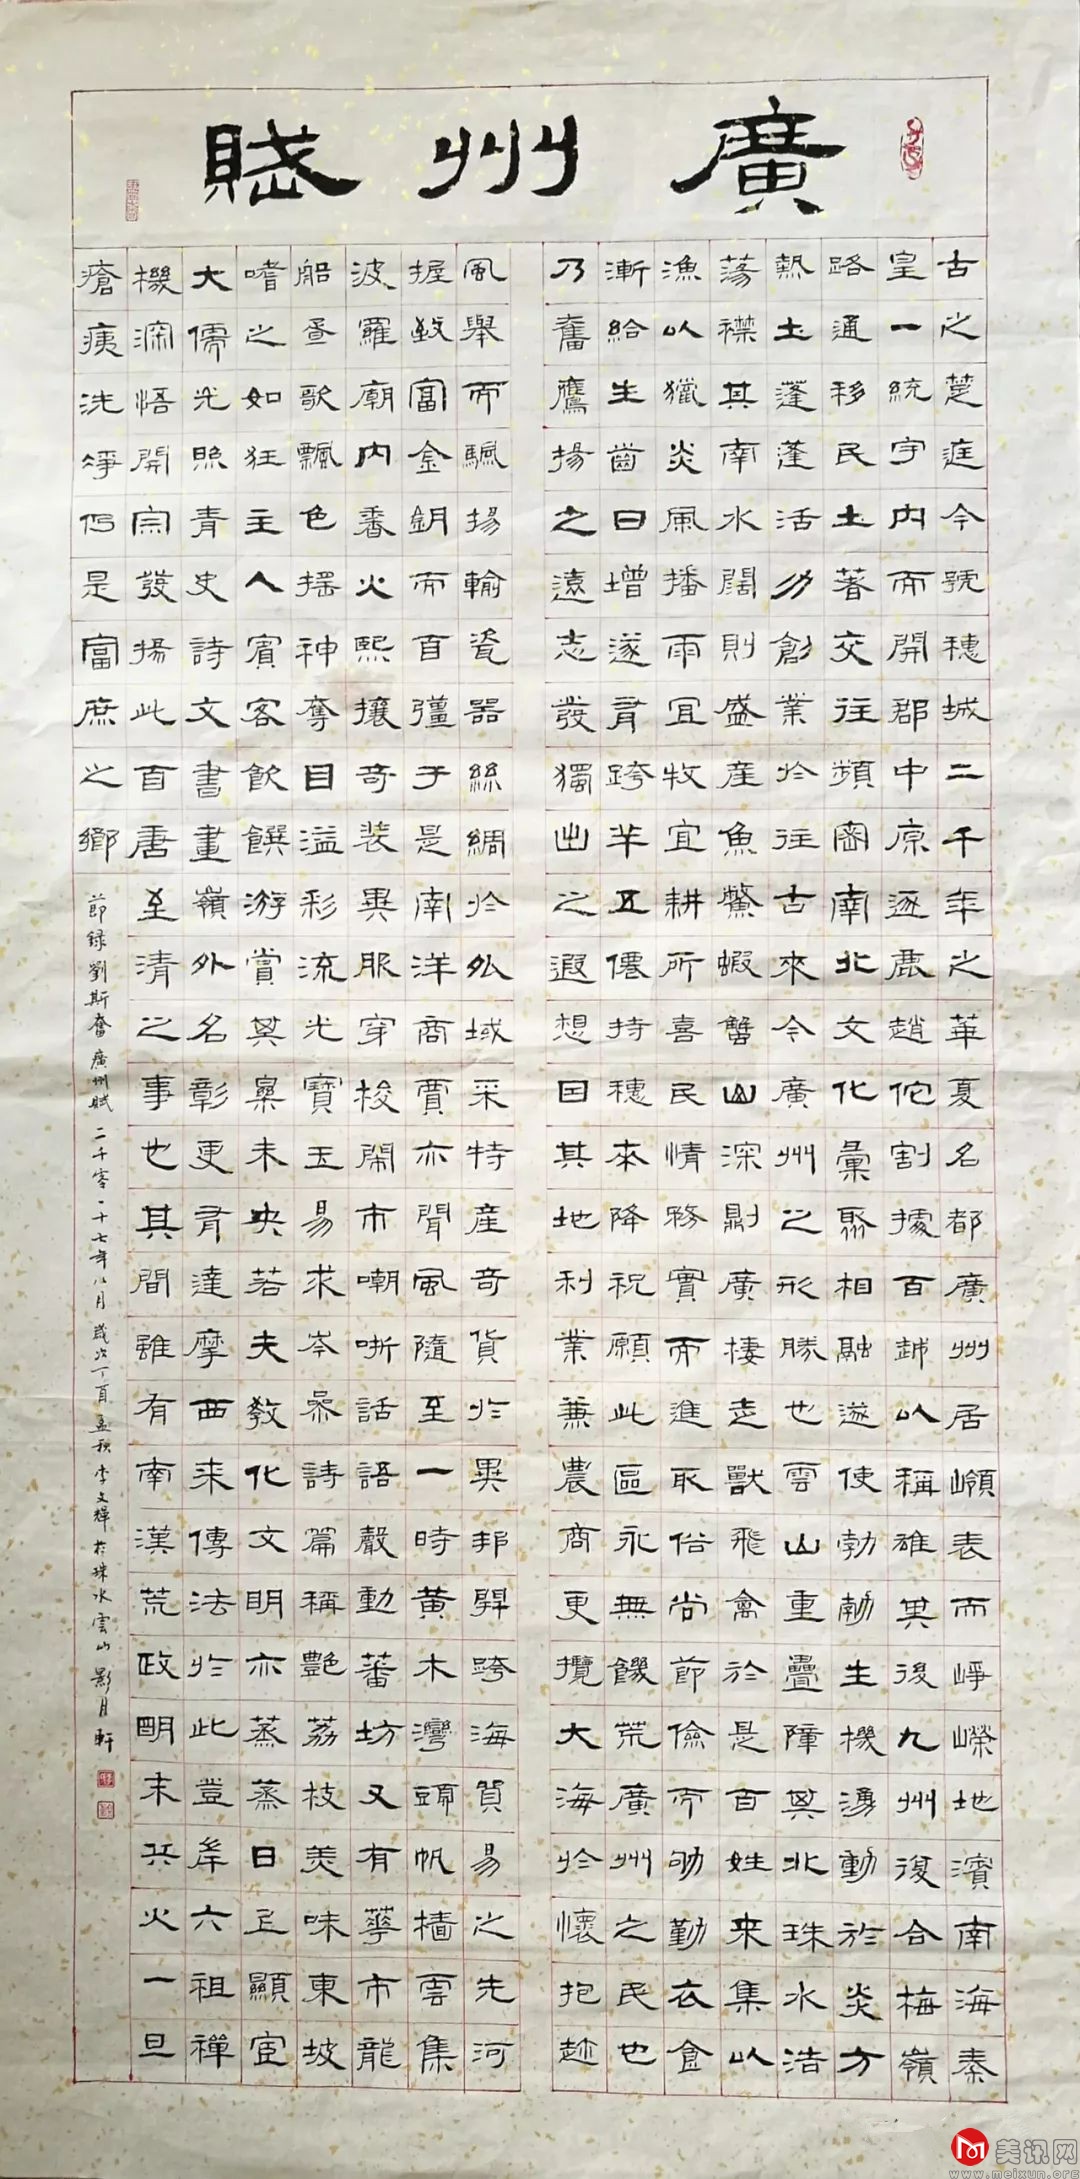 廣州賦
古之楚庭今號穗城二千年之華夏名都廣州居嶺表而崢嶸地濱南海秦
皇一統宇内而開郡中原逐鹿趙佗割據百越以稱雄其後九州復合梅嶺
路通移民土著交往頻密南北文化彙聚相融遂使勃勃生機湧動於炎方
熱土蓬蓬活力創業於往古來今廣州之形勝也雲山重疊障其北珠水浩
蕩襟其南水闊則盛產魚鱉蝦蟹山深則廣棲走獸飛禽於是百姓来集以
漁以獵炎風播雨宜牧宜耕所喜民情務實而進取俗尚節儉而劬勤衣食
漸給生齒日增遂有跨羊五僊持穗来降祝願此區永無饑荒廣州之民也
乃奮鷹揚之遠志發獨出之遐想因其地利業兼農商更攬大海於懷抱趁
風舉而颿揚輸瓷器絲綢於外域采特產奇貨於異邦開跨海貿易之先河
握致富金鈅而自彊于是南洋商賈亦聞風隨至一時黃木灣頭帆檣雲集
波羅廟内香火熙攘奇裝異服穿梭鬧市嘲哳話語聲動蕃坊又有華市龍
船晝歌飄色搖神奪目溢彩流光寶玉易求岑參詩篇稱艷荔枝美味東坡
嗜之如狂主人賓客飲饌游賞其樂未央若夫教化文明亦蒸蒸日上顯宦
大儒光照青史詩文書畫嶺外名彰更有達摩西来傳法於此登岸六祖禪
機深悟開宗發揚此自唐至清之事也其間雖有南漢荒政明末兵火一旦
瘡痍洗淨仍是富庶之鄉
節録劉斯奮廣州賦 二千零一十七年八月 歲次丁酉孟秋李文輝於珠水雲山影月軒
美讯网
www.meixun.org